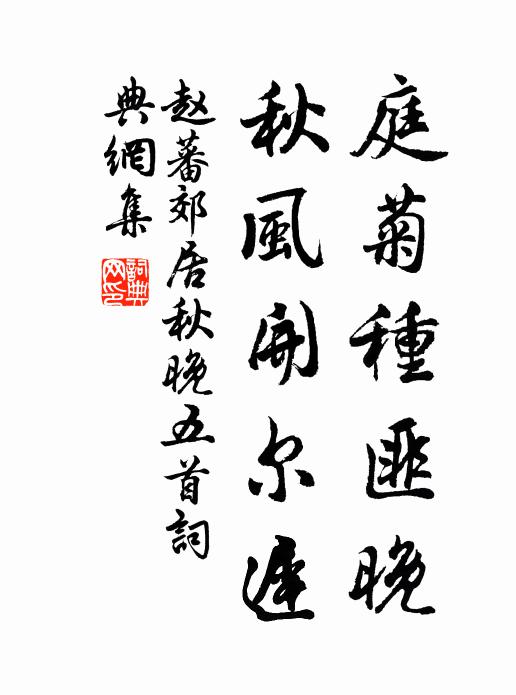 庭菊種匪晚
秋風開尔遲
赵蕃郊居秋晚五首詞
典網集
詞典网印